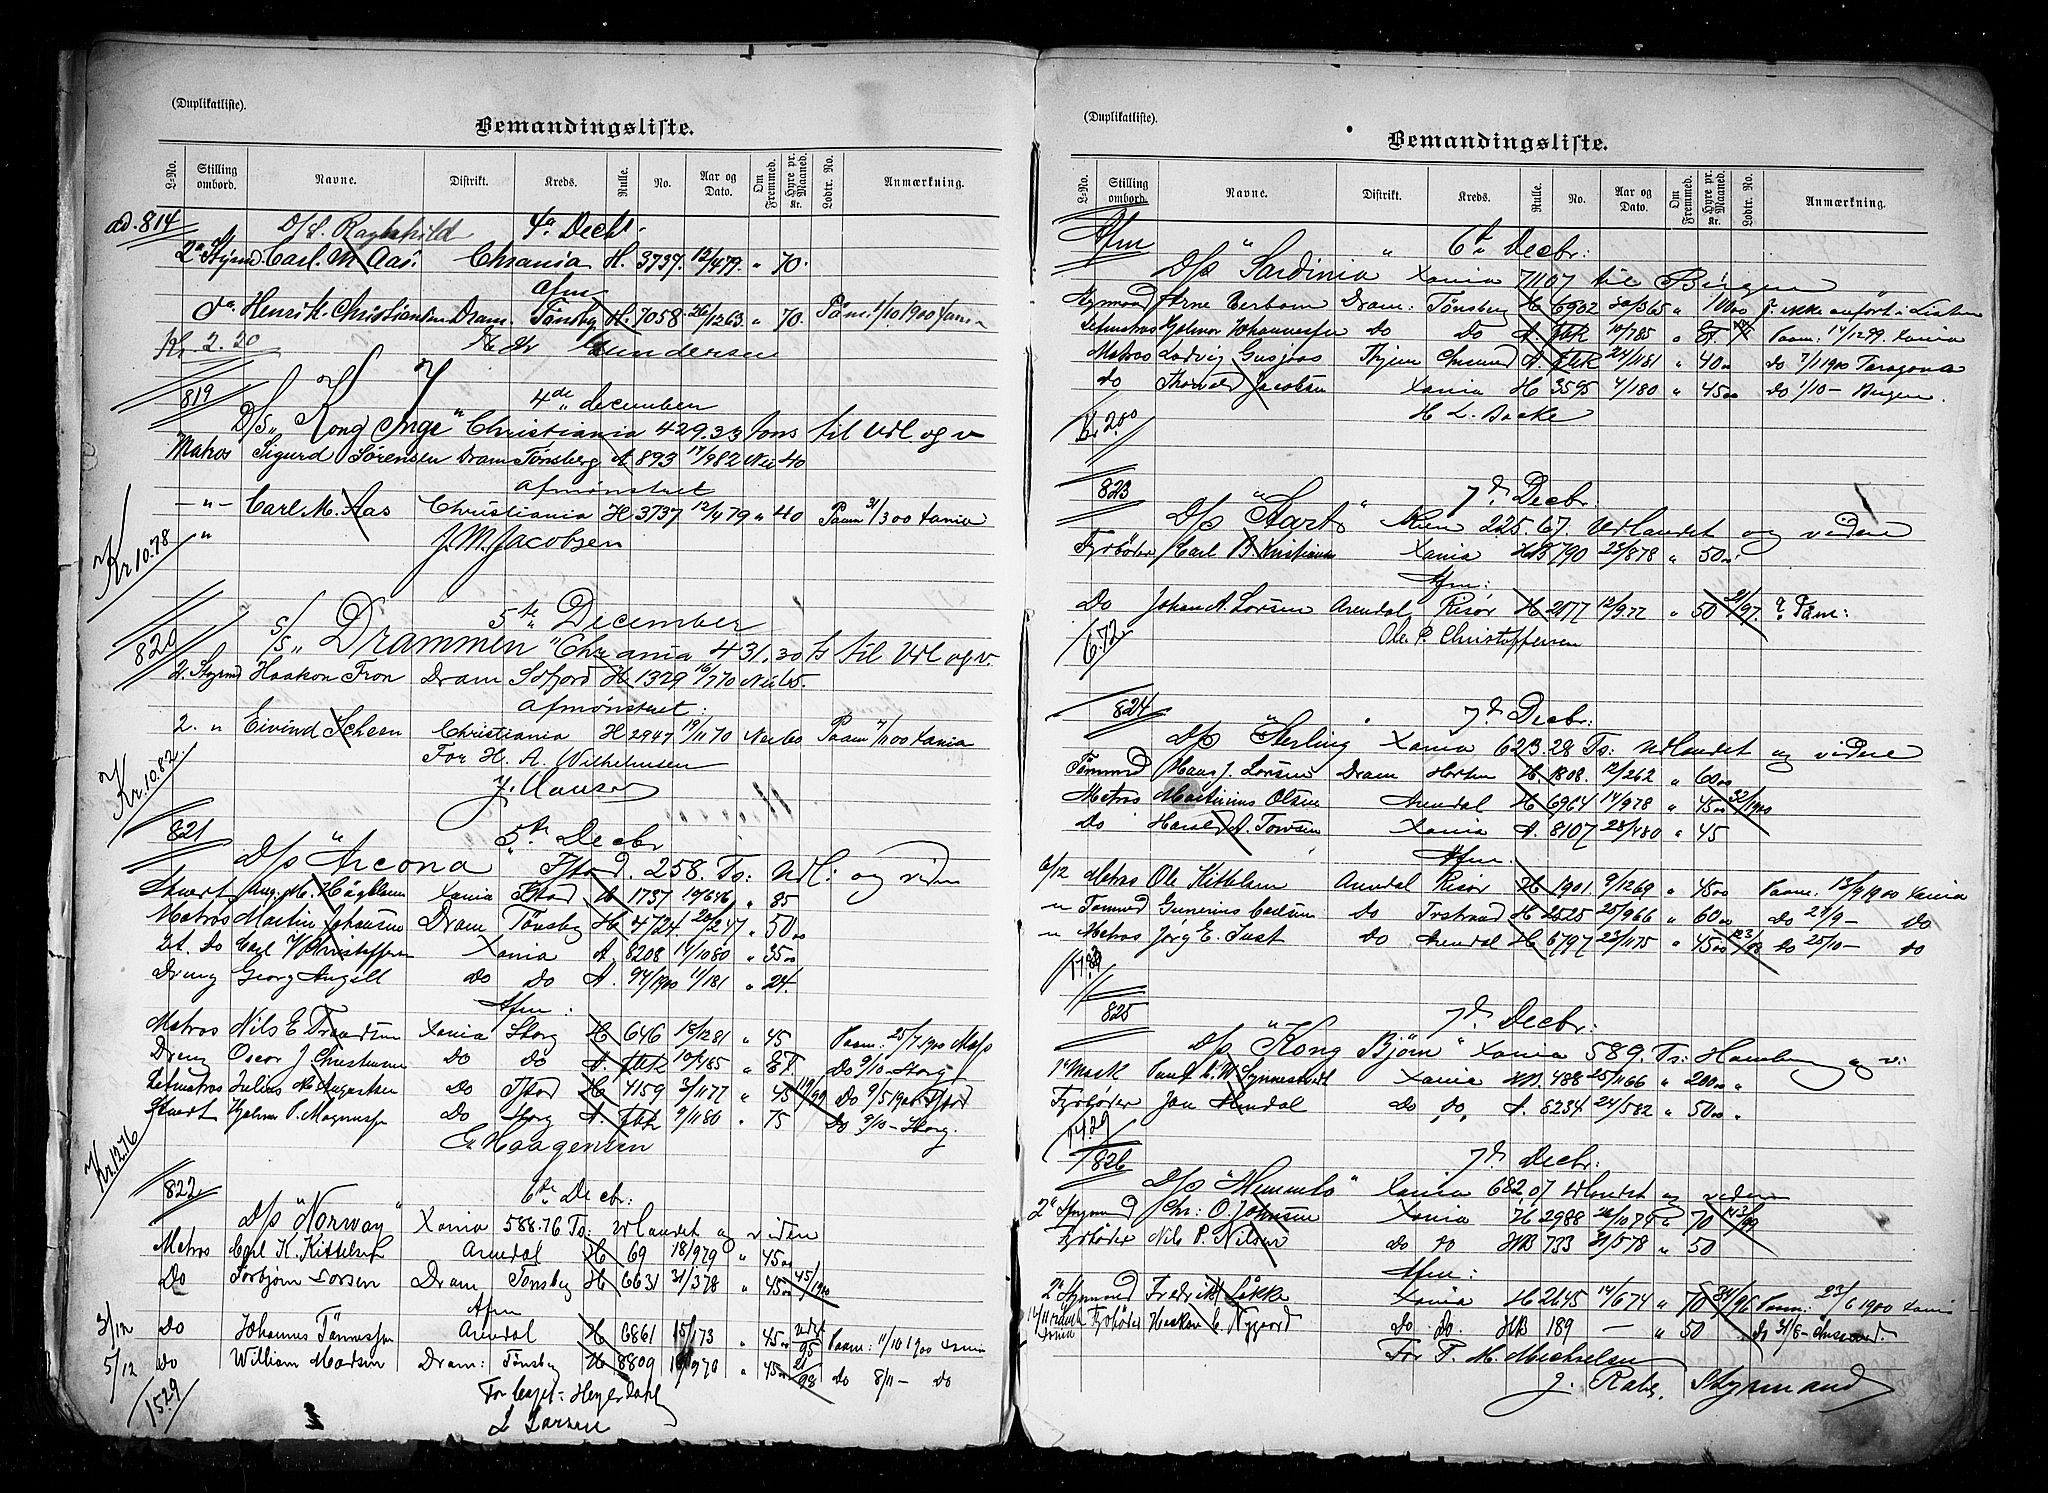 (Duplikatliste).
Bemandingsliste.
L-No. Stilling ombord. Navne. Distrikt. Kreds. Rulle. No. Aar og Dato. Om Fremmed. Hyre pr. Maaned. Kr. Lodtr. No. Anmærkning.
ad. 814 D/S. Raghnhild 4de Decbr.
2den Styrmd Carl. M Aas. Chrania H. 3737. 12/4 79. " 70.
Afm
do Henrik Christiansen Dram. Tønsbg H. 7058 26/12 63. " 70. Paam. 1/10 1900 Xania
Kr. 2.20 Gundersen
819 4de december
D/S „Kong Inge" Christiania 429.33 tons til Udl og v
Matros Sigurd Sørensen Dram Tønsberg A 893 17/9 82 Nei 40
Afmønstret
-"- Carl M. Aas Christiania H 3737 12/4 79 " 40 Paam 31/3 00 Xania
" J. M. Jacobsen
Kr. 10.78
820 5te December
S/S „Drammen" Chrania 431.30 Ts til Udl og v.
2. Styrmd Haakon Tron Dram Solfjord H 1329 16/7 70 Nei 65.
Afmønstret:
2. " Eivind Scheen Christiania H 2947 19/11 70 Nei 60 Paam 7/11 00 Xania
For H. A. Wilhelmsen
J. Hansen
Kr. 10.82
821 5te Decbr
D/S "Arcona Fstad. 258. Ts: Udl: og viden
Stuert Aug. M. Hägblom Xania Fstad 1737 19/6 46 " 85
Matros Martin Johansen Dram Tønsbg H 4724 20/2 47 " 50 00
Lt. Do Carl W Christoffersen Xania A. 8208 14/10 80 " 35 00
Dreng Georg Angell do do A. 94/1900 11/1 81 " 24.
Afm:
Matros Nils E Traadsen Xania Sborg H 646 18/12 81 " 45 Paam: 25/7 1900 Moss
Dreng Oscar J. Christiansen Do do A. 10/4 85 " Do 9/10 - Sborg
Letmatros Julius M. Augustsen Do Fstad H 4159 3/11 77 " 45 119/99 Do 9/5 1900 Fstad
Stuert Hjalmar P. Magnussen Do Sborg A. 9/11 80 " 75 Do 9/10 - Sborg.
E. Haagensen
Kr. 12.76
822 6te Decbr:
D/S "Norway" Xania 588.76 Ts: Udlandet og viden
Matros Carl K. Kittelsen Arendal H 69 18/9 79 " 45 00
Do Torbjørn Larsen Dram Tønsbg H 6631 31/3 78 " 45 00 45/1900
Afm
3/12 Do Johannes Tønnessen Arendal H 6861 15/1 73 " 45 00 Paam: 11/10 1900 Xania
5/12 Do William Madsen Dram: Tønsbg H. 8809 18/9 70 " 45 00 21/98 do 8/11 - do
15.29 For Capt: Heyerdahl
L Larsen
(Duplikatliste).
Bemandingsliste.
L-No. Stilling ombord. Navne. Distrikt. Kreds. Rulle. No. Aar og Dato. Om Fremmed. Hyre pr. Maaned. Kr. Lodtr. No. Anmærkning.
Afm 6te Decbr:
D/S "Sardinia" Xania 711 07 til Bergen
Styrmand Arne Dram: Tønsberg H 6902 20/3 65 " 100 00 ikke anført i Listen
Letmatros Hjalmar Johannessen Do Do A. 10/7 85 " Paam: 14/12 99. Xania
Matros Ludvig A. 24/11 81 " 40 00 do 7/1 1900 Taragona
do Jacobsen Xania H 3595 4/1 80 " 45 00 do 1/10 - Bergen.
H L. Backe
Kr 2.80
823 7de Decbr
D/S "Start" Kien 225.67. Udlandet og videre
Fyrbøder Carl B Kristiansen Xania HB 790 23/8 78 " 50 00
Afm:
Do Johan A. Larsen Arendal Risør H 2077 12/9 77 " 50 21/97. ? Paam:
6.72 Ole P. Christoffersen
824 7de Decbr:
D/S "Sterling" Xania 623.28 Ts: Udlandet og videre
Tømmd Hans J. Larsen Dram Horten H 1808. 12/2 62 " 60 00
Matros Martinius Olsen Arendal H 6964 14/9 78 " 45 00 32/1900
Do Harald A. Torvsen Xania A. 8107 28/4 80 " 45
Afm.
6/12 Matros Ole Kittelsen Arendal Risør H 1901 9/12 69 " 45 00 Paam: 13/9 1900 Xania
" Tømmd Gunerius Carlsen Do Tvstrand H 2525 25/9 66 " 60 00 Do 27/9 - Do
" Matros Jørg E. Just Do Arendal H 6797 23/11 75 " 45 00 Do 25/10 - do
17.39
825 7de Decbr:
D/S "Kong Bjørn" Xania 589. Ts: Hamburg og v:
1ste Mask Synnestvedt Xania HB. 488 25/11 66 " 200 00 "
Fyrbøder Jan Arendal do do, A. 8234 24/5 82 " 50 00 "
14.29
826 7de Decbr:
D/S "Memento" Xania 682.07 Udlandet og videre
2den Styrmand Chr: O. Johnsen Xania H 2988 26/10 74 " 70 143/99
Fyrbøder Nils P. Nilsen do do HB 733 31/5 78 " 50
Afm:
2den Styrmand Fredrik Løkke Xania H 2645 14/6 74 " 70 34/96 Paam: 23/6 1900 Xania
Fyrbøder Haakon C. Nygaard Do do. HB 189 — " 50 . do 31/8 -
For T. M. Michelsen
J. Styrmand